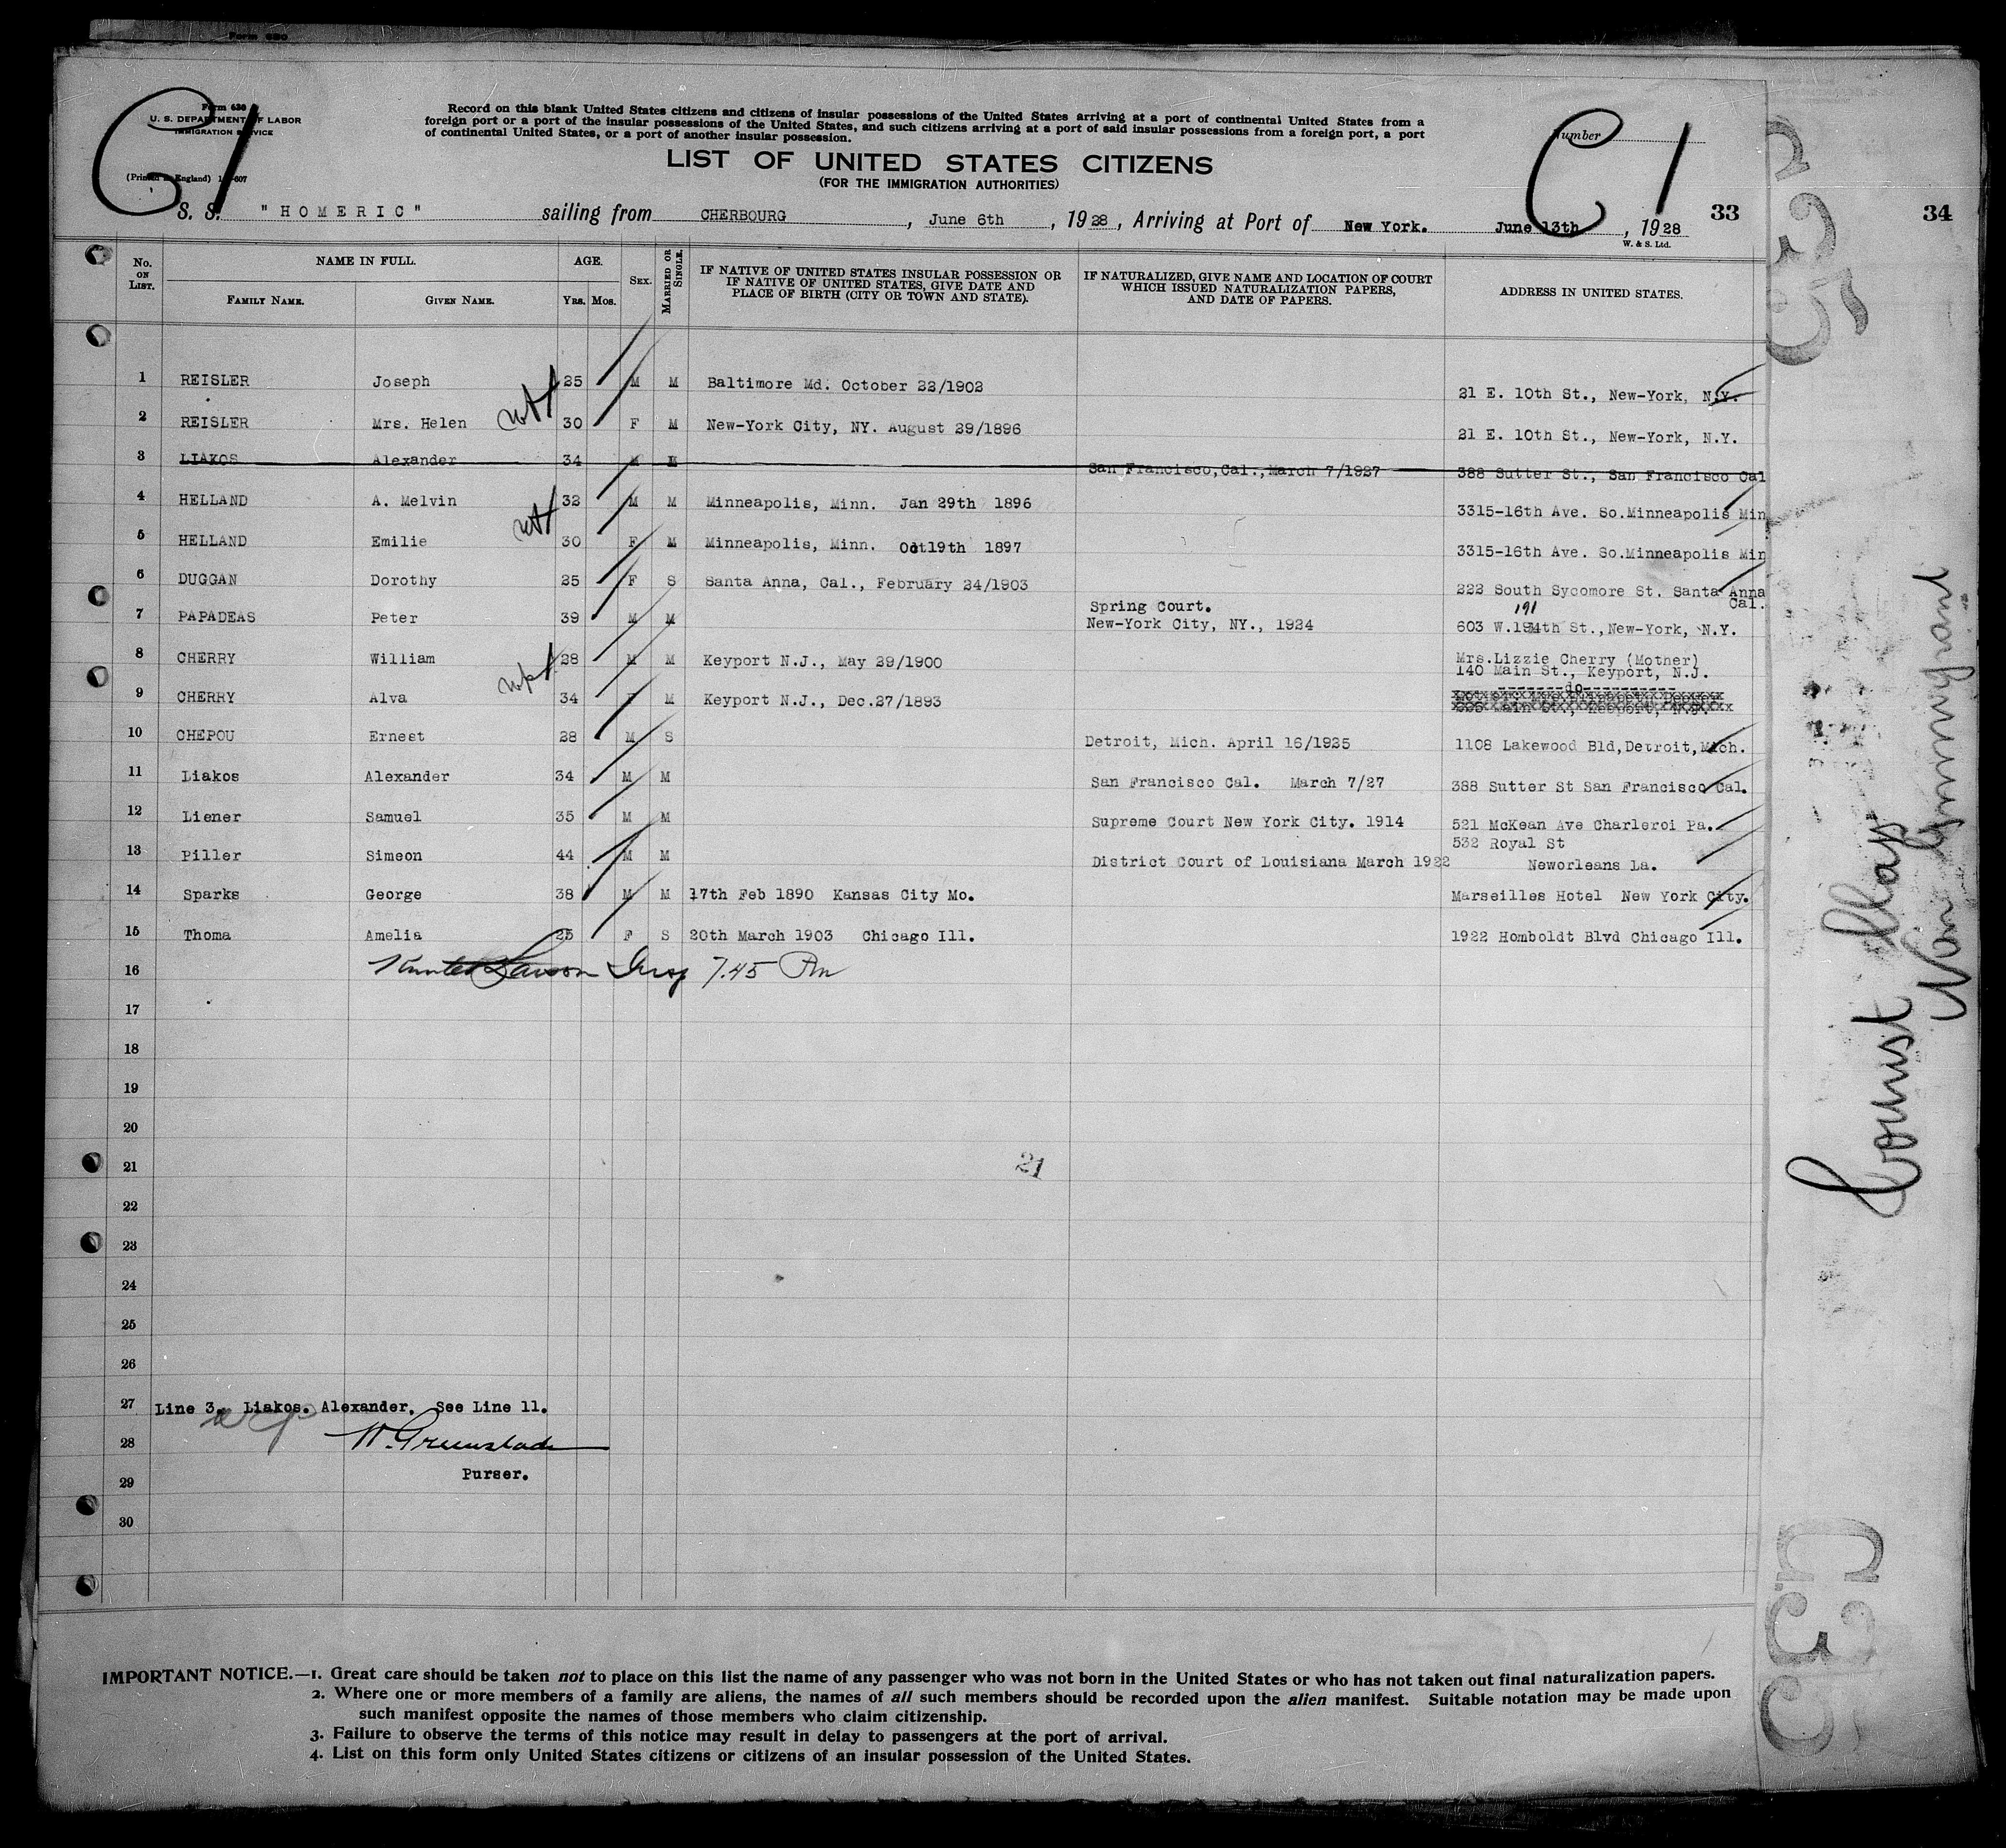 Form 630
U. S. DEPARTMENT OF LABOR
IMMIGRATION SERVICE
(Printed in England)
C 1
Record on this blank United States citizens and citizens of insular possessions of the United States arriving at a port of continental United States from a
foreign port or a port of the insular possessions of the United States, and such citizens arriving at a port of said insular possessions from a foreign port, a port
of continental United States, or a port of another insular possession.
Number
C 1
LIST OF UNITED STATES CITIZENS
(FOR THE IMMIGRATION AUTHORITIES)
S. S. "HOMERIC" sailing from CHERBOURG, June 6th, 1928, Arriving at Port of New York. June 13th, 1928
33
34
W. & S. Ltd.
No. ON LIST. NAME IN FULL. FAMILY NAME. GIVEN NAME. AGE. YRS. MOS. SEX. MARRIED OR SINGLE. IF NATIVE OF UNITED STATES INSULAR POSSESSION OR IF NATIVE OF UNITED STATES, GIVE DATE AND PLACE OF BIRTH (CITY OR TOWN AND STATE). IF NATURALIZED, GIVE NAME AND LOCATION OF COURT WHICH ISSUED NATURALIZATION PAPERS, AND DATE OF PAPERS. ADDRESS IN UNITED STATES.
1 REISLER Joseph 25 M M Baltimore Md. October 22/1902 21 E. 10th St., New-York, N.Y.
2 REISLER Mrs. Helen 30 F M New-York City, NY. August 29/1896 21 E. 10th St., New-York, N.Y.
3 LIAKOS Alexander 34 M M San Francisco,Cal.,March 7/1927 388 Sutter St., San Francisco Cal
4 HELLAND A. Melvin 32 M M Minneapolis, Minn. Jan 29th 1896 3315-16th Ave. So.Minneapolis Min
5 HELLAND Emilie 30 F M Minneapolis, Minn. Oct19th 1897 3315-16th Ave. So.Minneapolis Min
6 DUGGAN Dorothy 25 F S Santa Anna, Cal., February 24/1903 222 South Sycomore St. Santa Anna Cal.
7 PAPADEAS Peter 39 M M Spring Court. New-York City, NY., 1924 603 W. 191 th St.,New-York, N.Y.
8 CHERRY William 28 M M Keyport N.J., May 29/1900 Mrs.Lizzie Cherry (Mother) 140 Main St., Keyport, N.J.
9 CHERRY Alva 34 F M Keyport N.J., Dec.27/1893 -------do----------
10 CHEPOU Ernest 28 M S Detroit, Mich. April 16/1925 1108 Lakewood Bld,Detroit,Mich.
11 Liakos Alexander 34 M M San Francisco Cal. March 7/27 388 Sutter St San Francisco Cal.
12 Liener Samuel 35 M M Supreme Court New York City. 1914 521 McKean Ave Charleroi Pa.
13 Piller Simeon 44 M M District Court of Louisiana March 1922 532 Royal St Neworleans La.
14 Sparks George 38 M M 17th Feb 1890 Kansas City Mo. Marseilles Hotel New York City.
15 Thoma Amelia 25 F S 20th March 1903 Chicago Ill. 1922 Homboldt Blvd Chicago Ill.
16 Insp 7.45 Pm
17
18
19
20
21
21
22
23
24
25
26
27 Line 3. Liakos. Alexander. See Line 11.
28 W. Greenslade
Purser.
29
30
IMPORTANT NOTICE.—1. Great care should be taken not to place on this list the name of any passenger who was not born in the United States or who has not taken out final naturalization papers.
2. Where one or more members of a family are aliens, the names of all such members should be recorded upon the alien manifest. Suitable notation may be made upon
such manifest opposite the names of those members who claim citizenship.
3. Failure to observe the terms of this notice may result in delay to passengers at the port of arrival.
4. List on this form only United States citizens or citizens of an insular possession of the United States.
Tourist Class
Non Immigrant